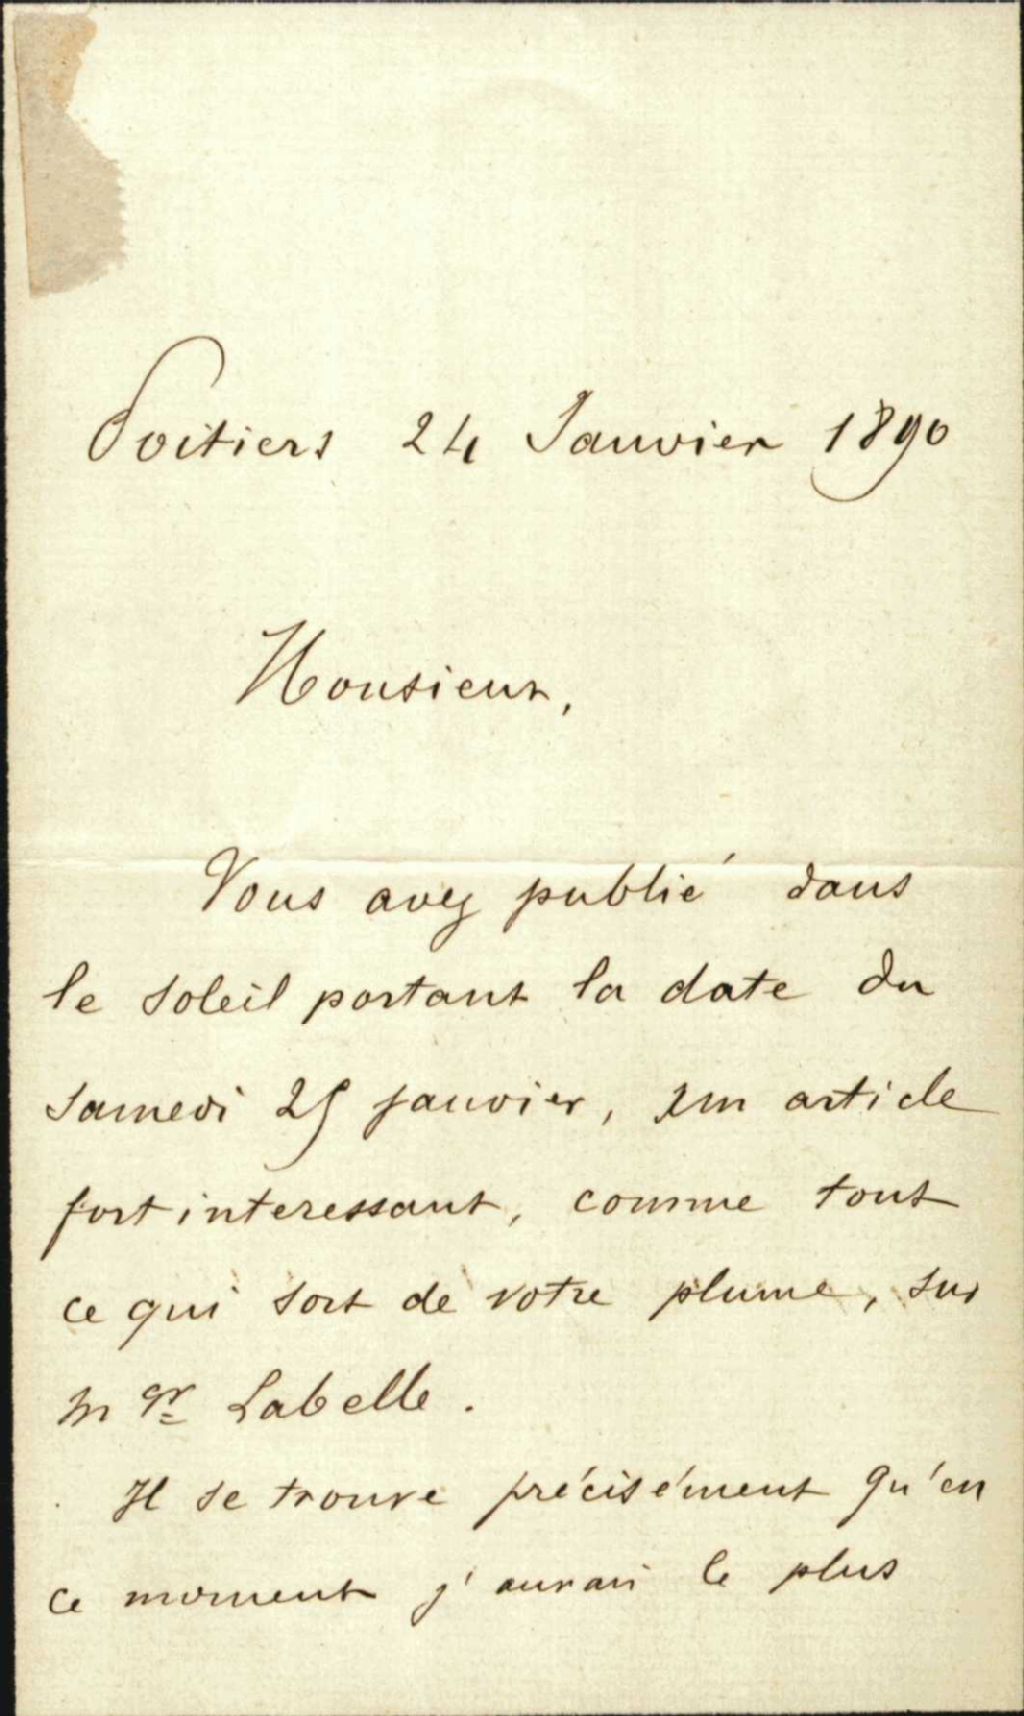 Poitiers 24 Janvier 1890
Monsieur,
Vous avez publié dans
le soleil portant la date du
samedi 25 janvier, un article
fort interessant, comme tout
ce qui sort de votre plume, sur
Mgr Labelle.
Il se trouve précisément qu'en
ce moment j'aurais le plus